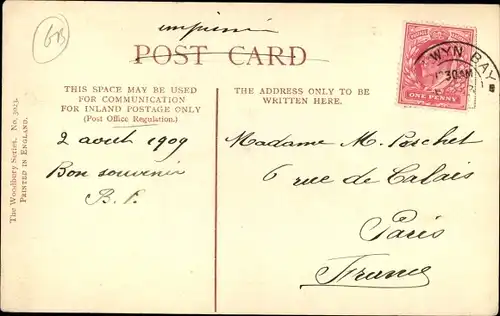 6B
imprimé
POST CARD
THIS SPACE MAY BE USED
FOR COMMUNICATION
FOR INLAND POSTAGE ONLY
(Post Office Regulation.)
THE ADDRESS ONLY TO BE
WRITTEN HERE.
POSTAGE REVENUE
ONE PENNY
WYN BAY
30AM
The Woodbury Series. No. 3023.
PRINTED IN ENGLAND.
2 août 1909
Bon souvenir
B. P.
Madame M. Poschet
6 rue de Calais
Paris
France